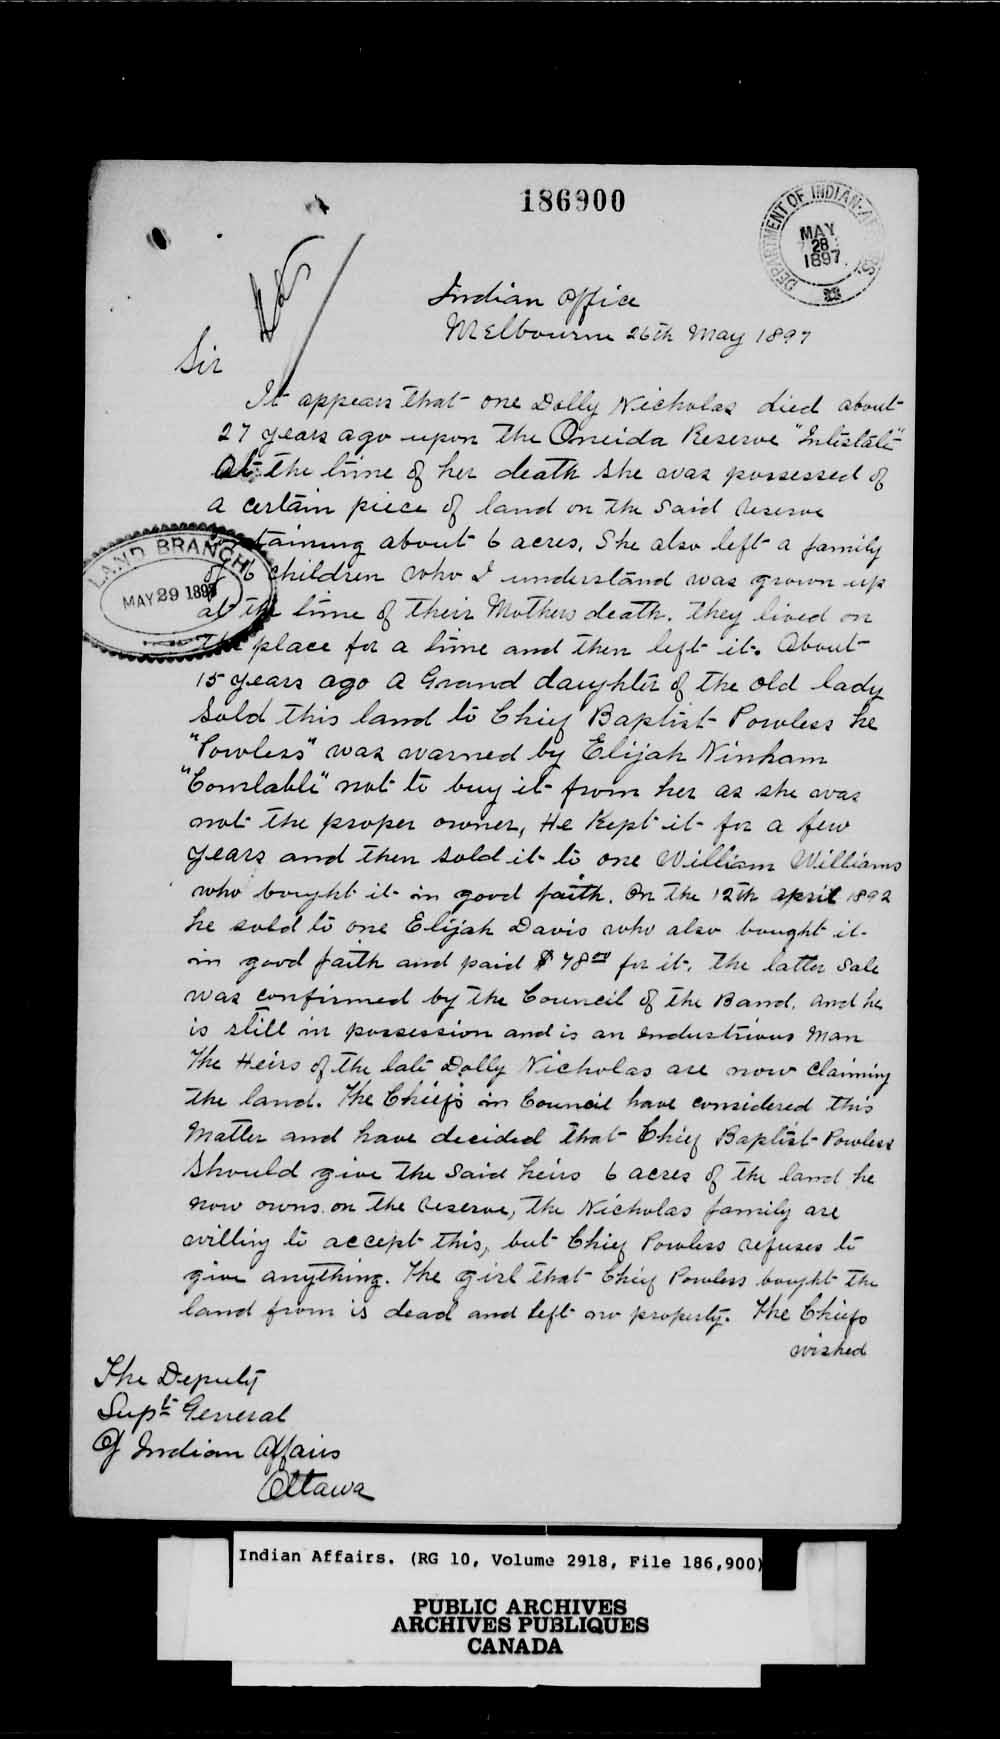 186900
DEPARTMENT OF INDIAN AFFAIRS.
MAY
28
1897
Indian Office
Melbourne 26th May 1897
Sir
It appears that one Dolly Nicholas died about
27 years ago upon the Oneida Reserve "Intestate"
At the time of her death she was possessed of
a certain piece of land on the said reserve
containing about 6 acres. She also left a family
of 6 children who I understand was grown up
at the time of their Mothers death. they lived on
the place for a time and then left it. About
LAND BRANCH
MAY 29 1897
15 years ago a Grand daughter of the old lady
sold this land to Chief Baptist Powless he
"Powless" was warned by Elijah Ninham
"Constable" not to buy it from her as she was
not the proper owner, He kept it for a few
years and then sold it to one William Williams
who bought it in good faith. On the 12th april 1892
he sold to one Elijah Davis who also bought it
in good faith and paid $78.00 for it. the latter sale
was confirmed by the Council of the Band. and he
is still in possession and is an industrious man
The Heirs of the late Dolly Nicholas are now claiming
the land. The Chiefs in Council have considered this
matter and have decided that Chief Baptist Powless
should give the said heirs 6 acres of the land he
now owns on the reserve, the Nicholas family are
willing to accept this, but Chief Powless refuses to
give anything. The girl that Chief Powless bought the
land from is dead and left no property. The Chiefs
wished
The Deputy
Supt General
Of Indian Affairs
Ottawa
Indian Affairs. (RG 10, Volume 2918, File 186,900)
PUBLIC ARCHIVES
ARCHIVES PUBLIQUES
CANADA